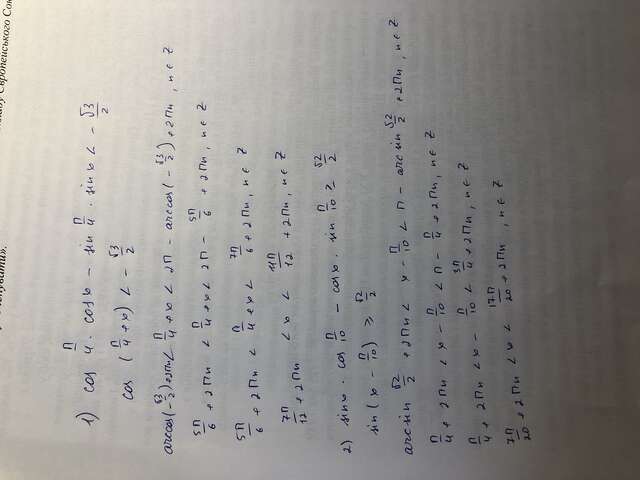 енувати».
ладу Європейського Сою
1) cos П/4 · cosx − sin П/4 · sinx < − √3/2
cos (П/4 + x) < − √3/2
arccos(−√3/2)+2Пn < П/4 + x < 2П − arccos(−√3/2)+2Пn, n ∈ Z
5П/6 + 2Пn < П/4 + x < 2П − 5П/6 + 2Пn, n ∈ Z
5П/6 + 2Пn < П/4 + x < 7П/6 + 2Пn, n ∈ Z
7П/12 + 2Пn < x < 11П/12 + 2Пn, n ∈ Z
2) sinx · cos П/10 − cosx · sin П/10 ≥ √2/2
sin(x − П/10) ≥ √2/2
arcsin √2/2 + 2Пn < x − П/10 < П − arcsin √2/2 + 2Пn, n ∈ Z
П/4 + 2Пn < x − П/10 < П − П/4 + 2Пn, n ∈ Z
П/4 + 2Пn < x − П/10 < 3П/4 + 2Пn, n ∈ Z
7П/20 + 2Пn < x < 17П/20 + 2Пn, n ∈ Z